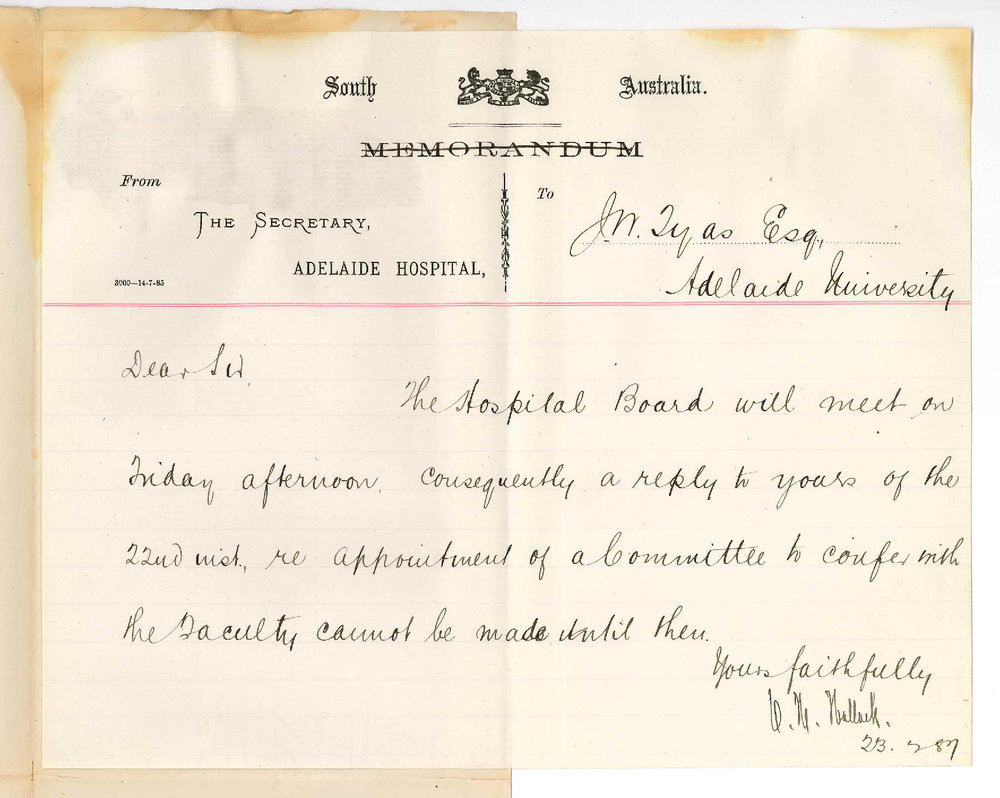 South Australia.
MEMORANDUM
From
THE SECRETARY,
ADELAIDE HOSPITAL,
3000—14-7-85
To
J.W. Tyas Esq.,
Adelaide University
Dear Sir,
The Hospital Board will meet on
Friday afternoon. Consequently a reply to yours of the
22nd inst., re appointment of a Committee to confer with
the Faculty cannot be made until then.
Yours faithfully
23. 7 87